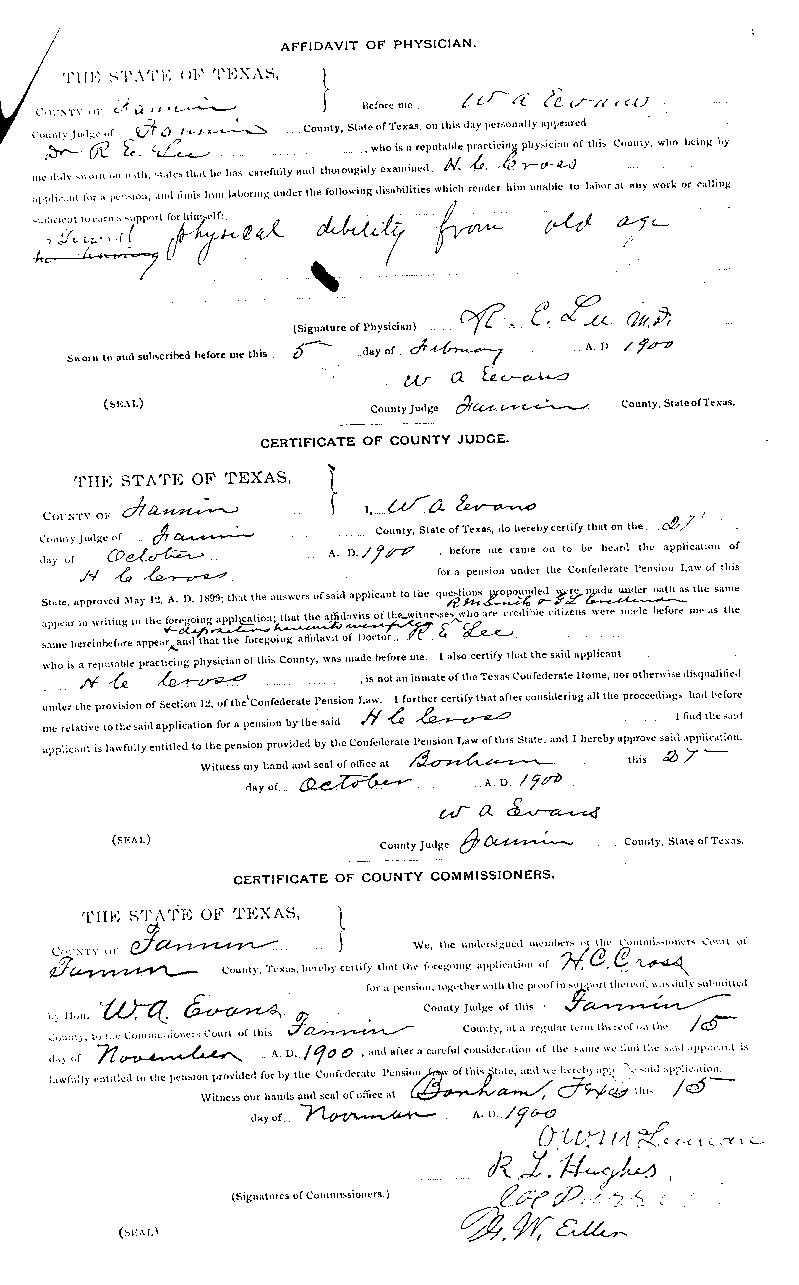 AFFIDAVIT OF PHYSICIAN.
THE STATE OF TEXAS,
COUNTY OF Fannin Before me W A Evans
County Judge of Fannin County, State of Texas, on this day personally appeared
Dr R E. Lee , who is a reputable practicing physician of this County, who being by
me duly sworn on oath, states that he has carefully and thoroughly examined H. C. Cross
applicant for a pension, and finds him laboring under the following disabilities which render him unable to labor at any work or calling
sufficient to earn a support for himself:
physical dibility from old age
(Signature of Physician) R. E. Lee M.D.
Sworn to and subscribed before me this 5 day of February A. D 1900
W A Evans
(SEAL) County Judge Fannin County, State of Texas.
CERTIFICATE OF COUNTY JUDGE.
THE STATE OF TEXAS,
COUNTY OF Fannin I, W A Evans
County Judge of Fannin County, State of Texas, do hereby certify that on the 27
day of October A. D. 1900 , before me came on to be heard the application of
H C Cross for a pension under the Confederate Pension Law of this
State, approved May 12, A. D. 1899; that the answers of said applicant to the questions propounded were made under oath as the same
appear in writing in the foregoing application; that the affidavits of the witnesses who are credible citizens were made before me as the
same hereinbefore appear, and that the foregoing affidavit of Doctor R E Lee
who is a reputable practicing physician of this County, was made before me. I also certify that the said applicant
H C Cross , is not an inmate of the Texas Confederate Home, nor otherwise disqualified
under the provision of Section 12, of the Confederate Pension Law. I further certify that after considering all the proceedings had before
me relative to the said application for a pension by the said H C Cross I find the said
applicant is lawfully entitled to the pension provided by the Confederate Pension Law of this State, and I hereby approve said application.
Witness my hand and seal of office at Bonham this 27
day of October A. D. 1900
W A Evans
(SEAL) County Judge Fannin County, State of Texas.
CERTIFICATE OF COUNTY COMMISSIONERS.
THE STATE OF TEXAS,
COUNTY OF Fannin We, the undersigned members of the Commissioners Court of
Fannin County, Texas, hereby certify that the foregoing application of H. C. Cross
for a pension, together with the proof in support thereof, was duly submitted
by Hon. W. A. Evans County Judge of this Fannin
County, to the Commissioners Court of this Fannin County, at a regular term thereof on the 15
day of November A. D. 1900, and after a careful consideration of the same we find the said applicant is
lawfully entitled to the pension provided for by the Confederate Pension Law of this State, and we hereby said application.
Witness our hands and seal of office at Bonham, Texas this 15
day of A. D. 1900
R L Hughes
(Signatures of Commissioners.)
(SEAL)